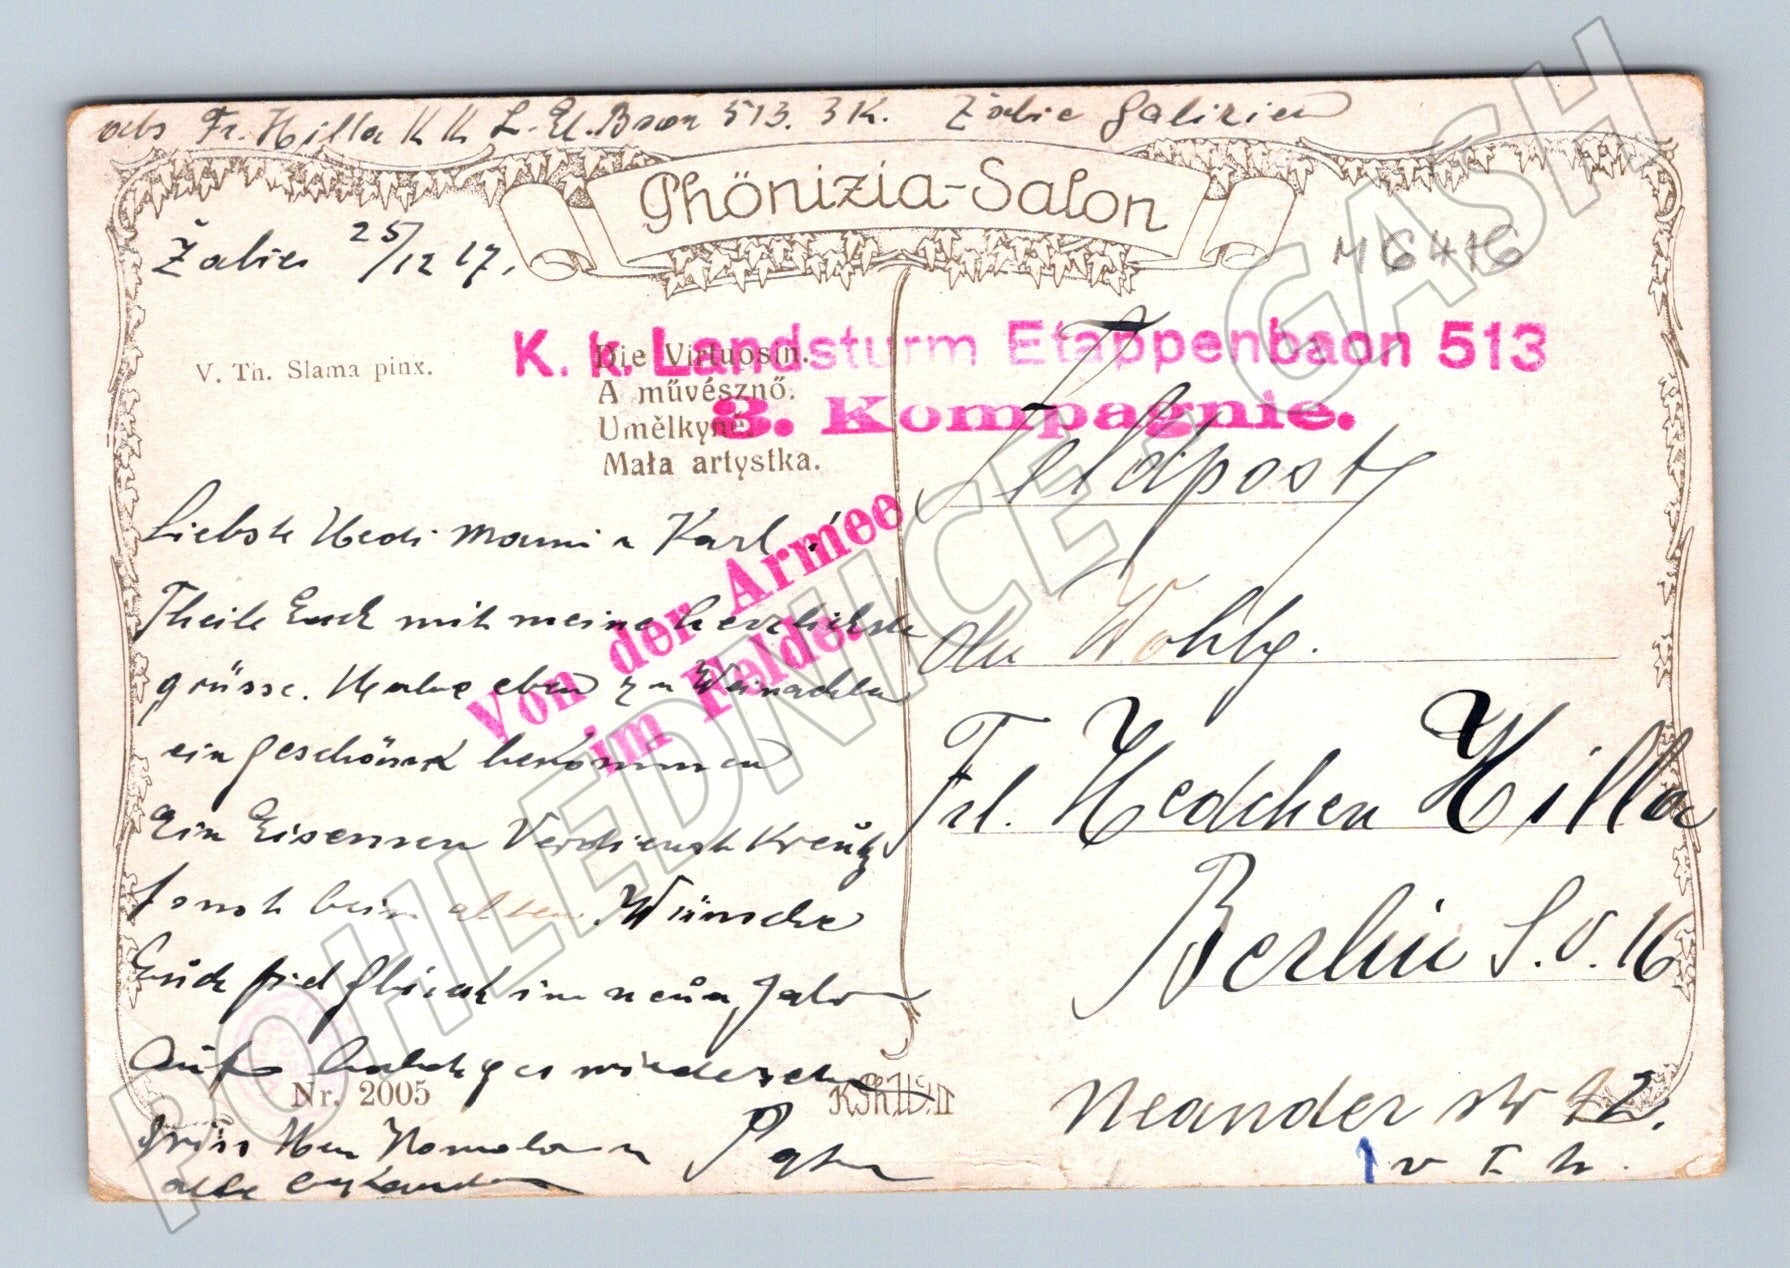 abs Fr. Hilla K K L. Et. Baon 513. 3 K. Žabie Galizien
Phönizia-Salon
Žabie 25/12 17.
M6416
K. k. Landsturm Etappenbaon 513
3. Kompagnie.
V. Th. Slama pinx.
Die Virtuosin.
A művésznő.
Umělkyně.
Mała artystka.
Von der Armee
im Felde.
Liebste Hedi Mami u Karl!
Theile Euch mit meine herzlichste
grüsse. Habe eben zu Weinachten
ein geschönk bekommen
Ein Eisernen Verdienst Kreutz
sonst beim alten. Wünsche
Euch fiel Glück im neun Jahr
Auf baldiges wiedersehn
Grüss Herr u
alle bekanten
Nr. 2005
Feldpost
An Wohlg.
Frl. Hedchen Hilla
Berlin S.O. 16
Neander str 12.
1 v I h.
POHLEDNICE - GASH